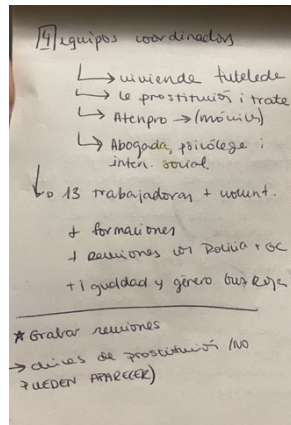 4 equipos coordinados
↳ vivienda tutelada
↳ la prostitución i trata
↳ Atenpro → (móviles)
↳ Abogada, psicóloga i
inten. social
↳ 13 trabajadoras + volunt.
+ formaciones
+ Reuniones con Policía + GC
+ igualdad y género Cruz Roja
* Grabar reuniones
→ chicas de prostitución (NO
PUEDEN APARECER)